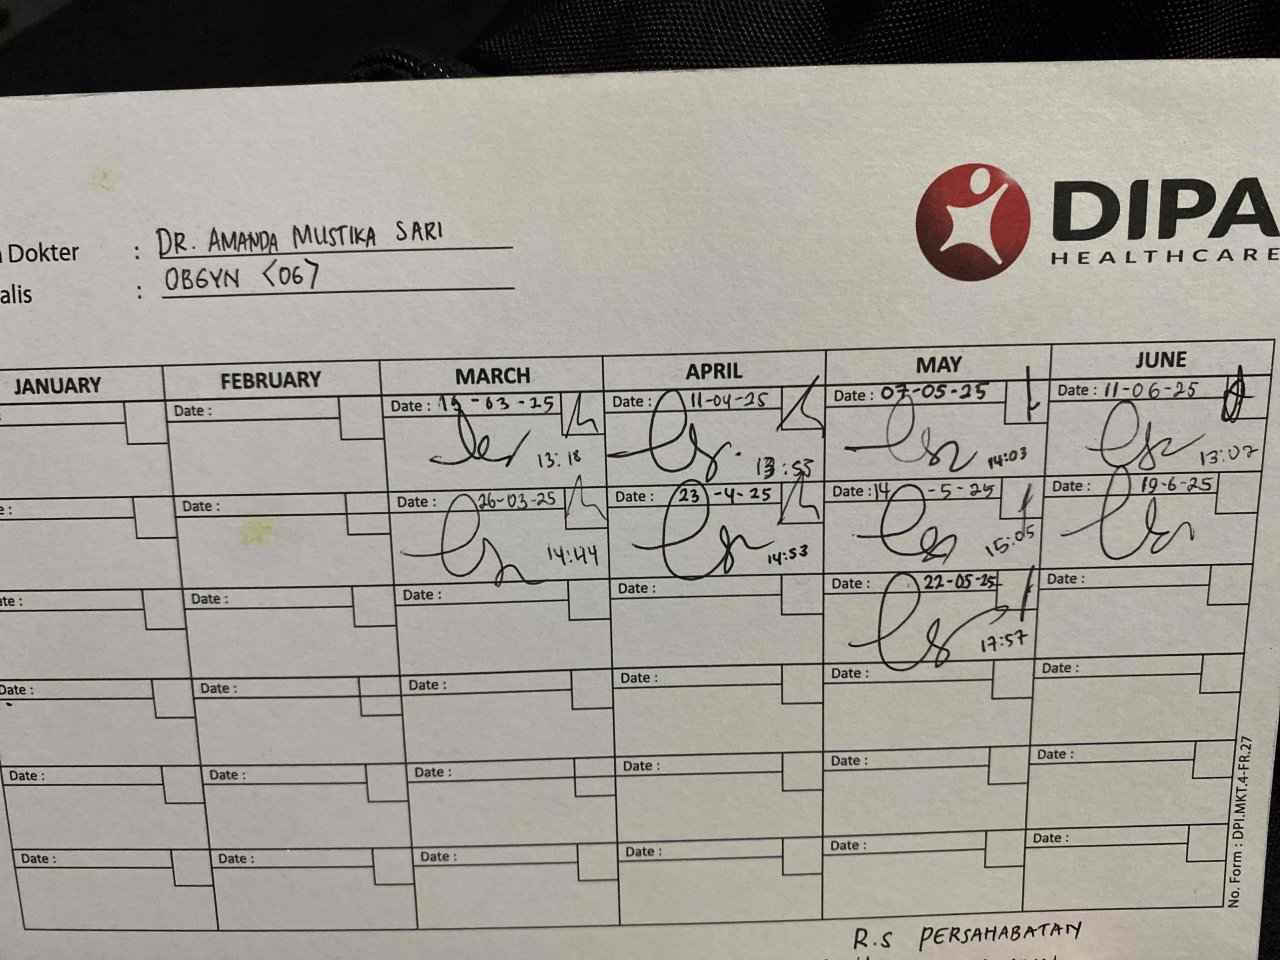 DIPA
HEALTHCARE
Dokter : DR. AMANDA MUSTIKA SARI
alis : OBGYN <06>
JANUARY FEBRUARY MARCH APRIL MAY JUNE
: Date : Date : 19-03-25 Date : 11-04-25 Date : 07-05-25 Date : 11-06-25
13:18 13:53 14:03 13:07
e : Date : Date : 26-03-25 Date : 23-4-25 Date : 14-5-25 Date : 19-6-25
14:44 14:53 15:05
ate : Date : Date : Date : Date : 22-05-25 Date :
17:57
Date : Date : Date : Date : Date : Date :
Date : Date : Date : Date : Date : Date :
Date : Date : Date : Date : Date : Date :
No. Form : DPI.MKT.4-FR.27
R.S PERSAHABATAN